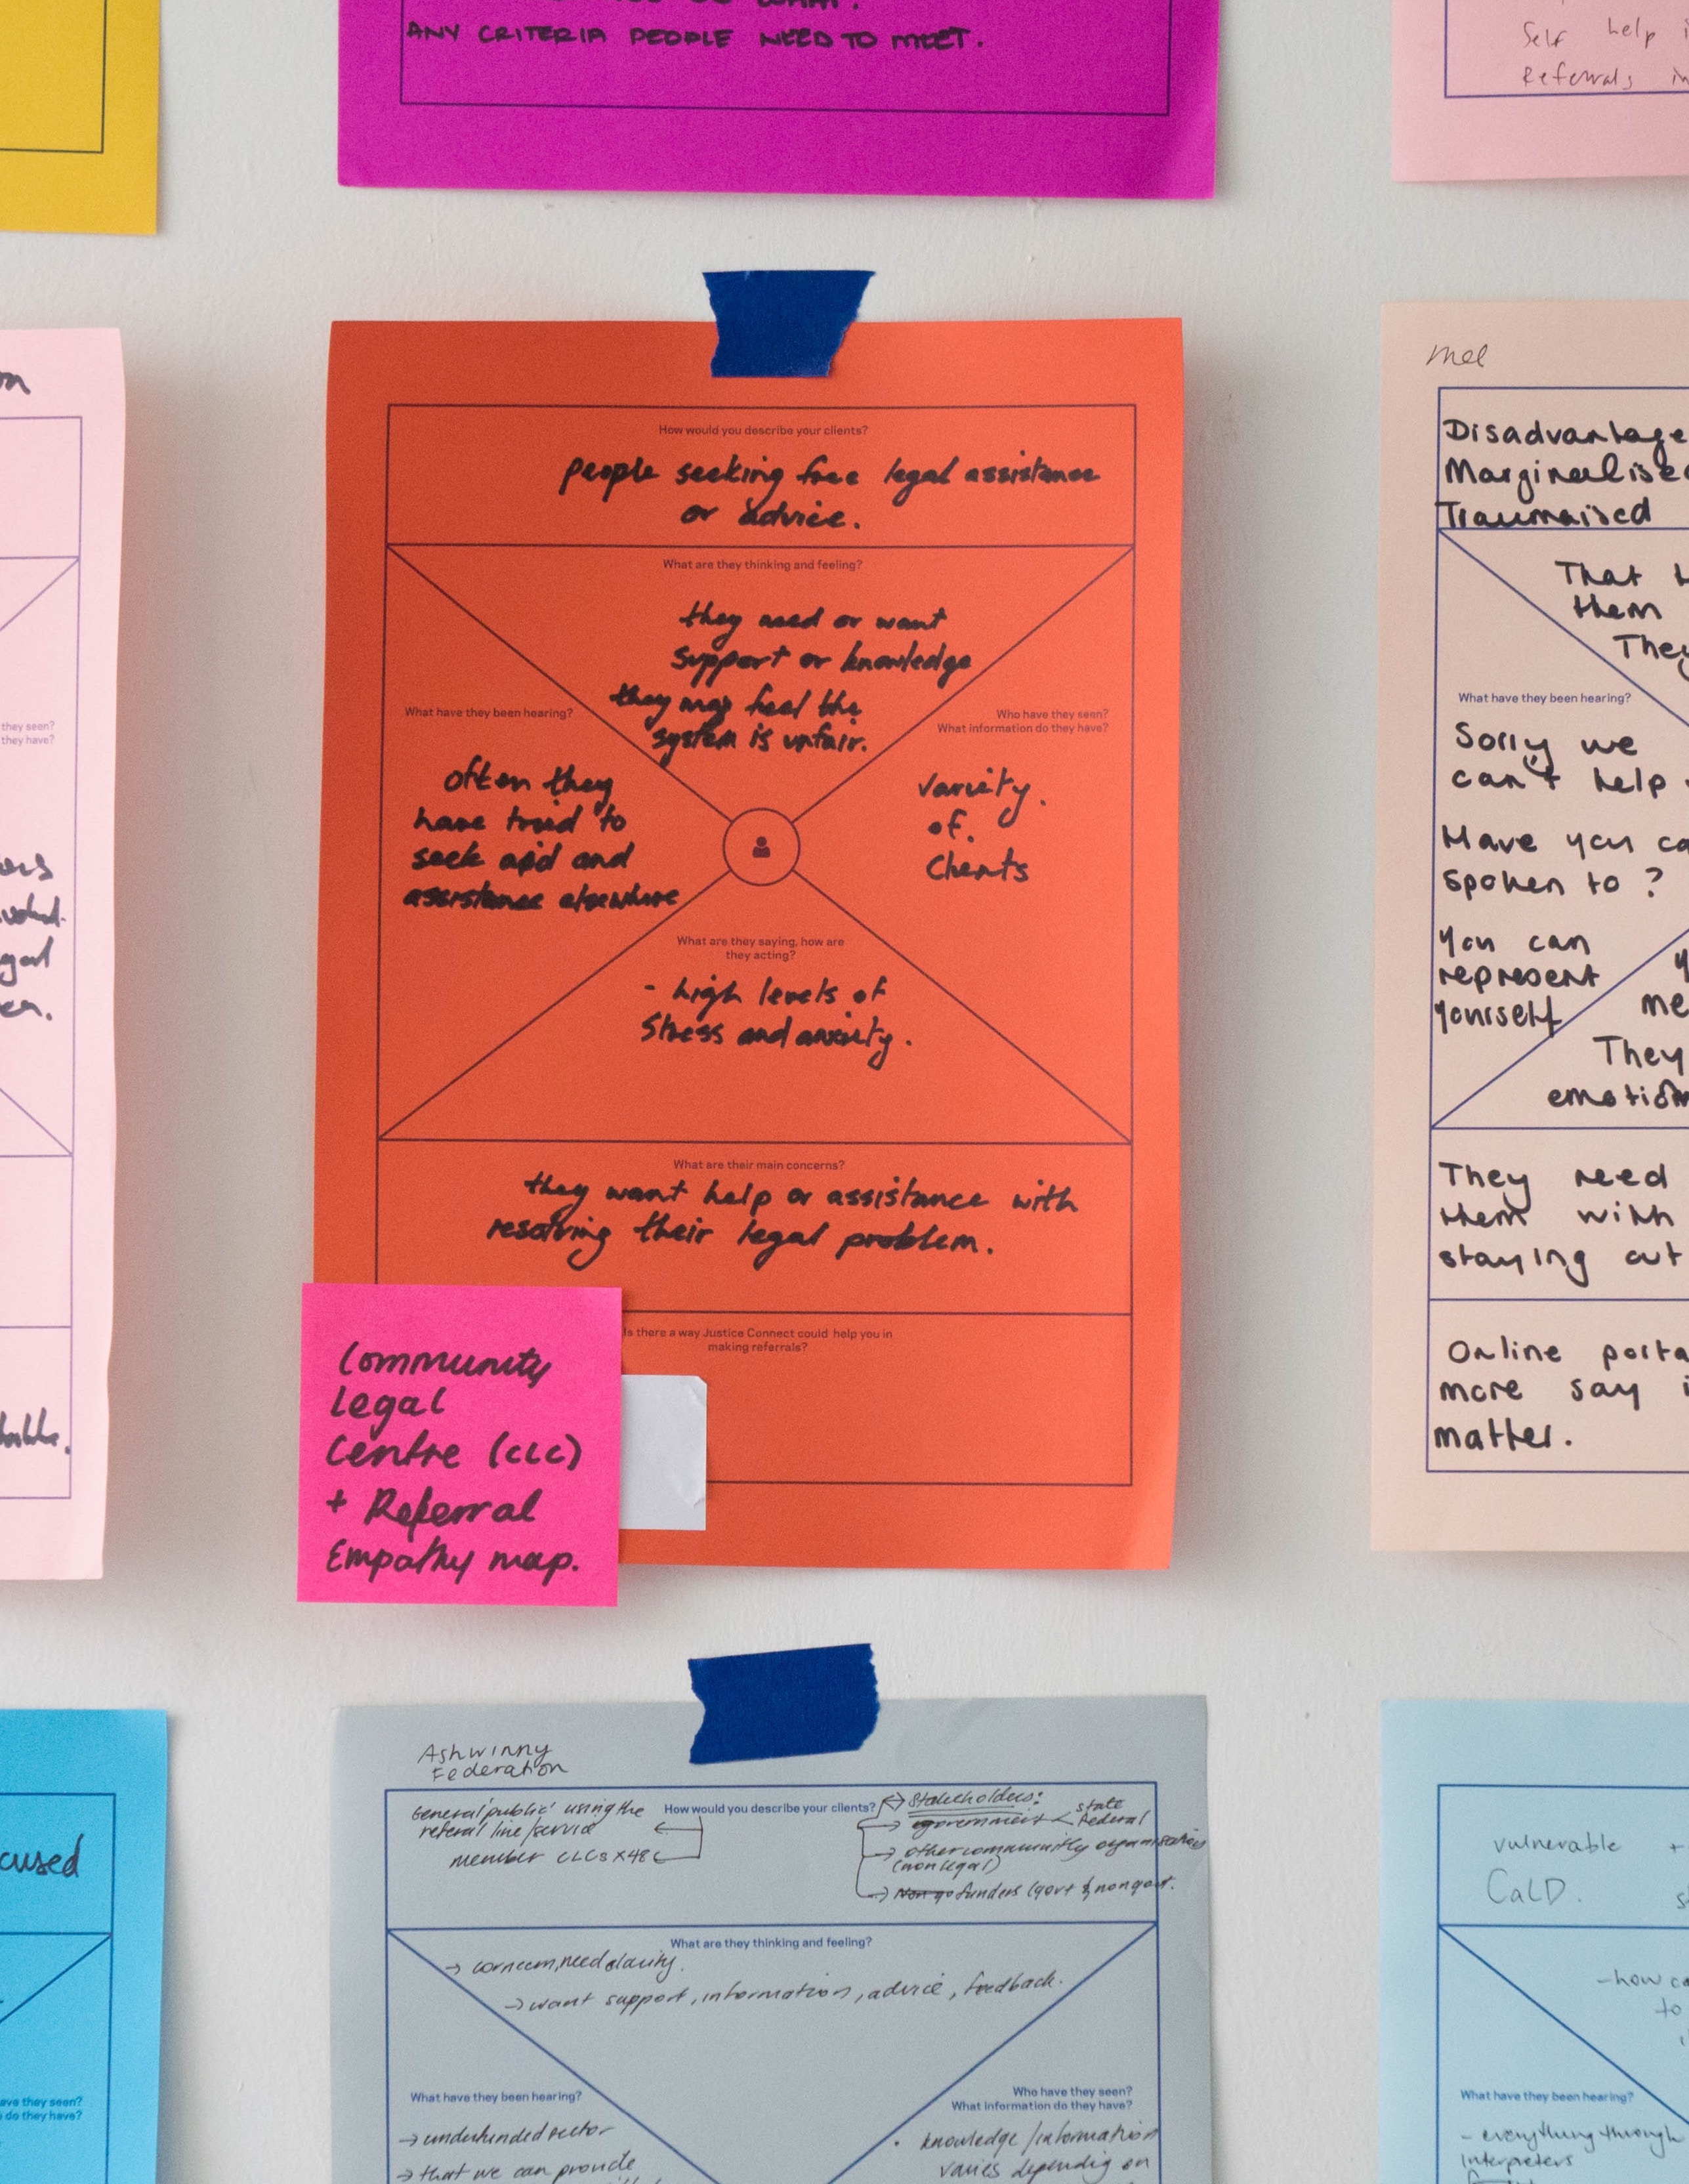 ANY CRITERIA PEOPLE NEED TO MEET.
Self help
Referrals
How would you describe your clients?
people seeking free legal assistance
or advice.
What are they thinking and feeling?
they need or want
support or knowledge
they may feel the
system is unfair.
What have they been hearing?
often they
have tried to
seek aid and
assistance elsewhere
Who have they seen?
What information do they have?
variety.
of.
Clients
What are they saying, how are
they acting?
- high levels of
stress and anxiety.
What are their main concerns?
they want help or assistance with
resolving their legal problem.
Is there a way Justice Connect could help you in
making referrals?
Community
Legal
Centre (CLC)
+ Referral
Empathy map.
they seen?
they have?
Mel
Disadvantage
Marginalise
Traumaised
That
them
They
What have they been hearing?
Sorry we
can't help
Have you
spoken to?
You can
represent
yourself
me
They
emotion
They need
them with
staying out
Online porta
more say
matter.
Ashwinny
Federation
General 'public' using the
referal line/service
member CLCs x48
How would you describe your clients?
Stakeholders:
government < state
Federal
other community organisations
(non legal)
funders (govt & nongovt.
What are they thinking and feeling?
→ concern, need clarity.
→ want support, information, advice, feedback.
What have they been hearing?
→ underfunded sector
→ that we can provide
Who have they seen?
What information do they have?
• knowledge/information
varies depending on
cused
ave they seen?
do they have?
vulnerable +
CaLD.
- how
to
What have they been hearing?
- everything through
interpreters